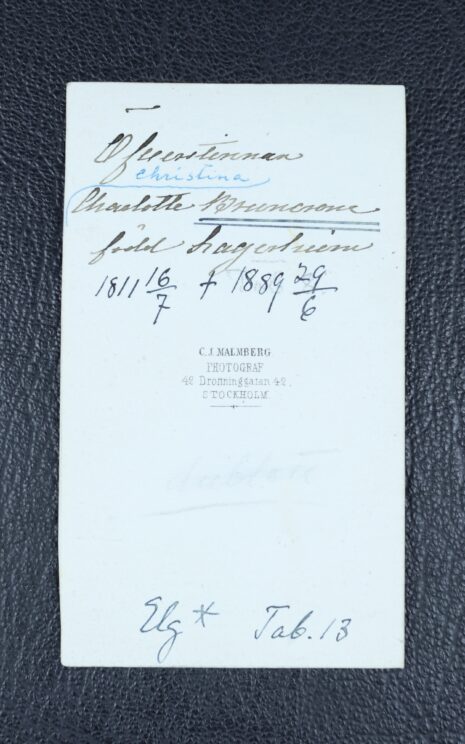 Öfverstinnan
Christina
Charlotte Bruncrona
född Lagerheim
1811 16/7 † 1889 29/6
C. J. MALMBERG.
PHOTOGRAF
42 Drottninggatan 42.
STOCKHOLM
Elg * Tab. 13